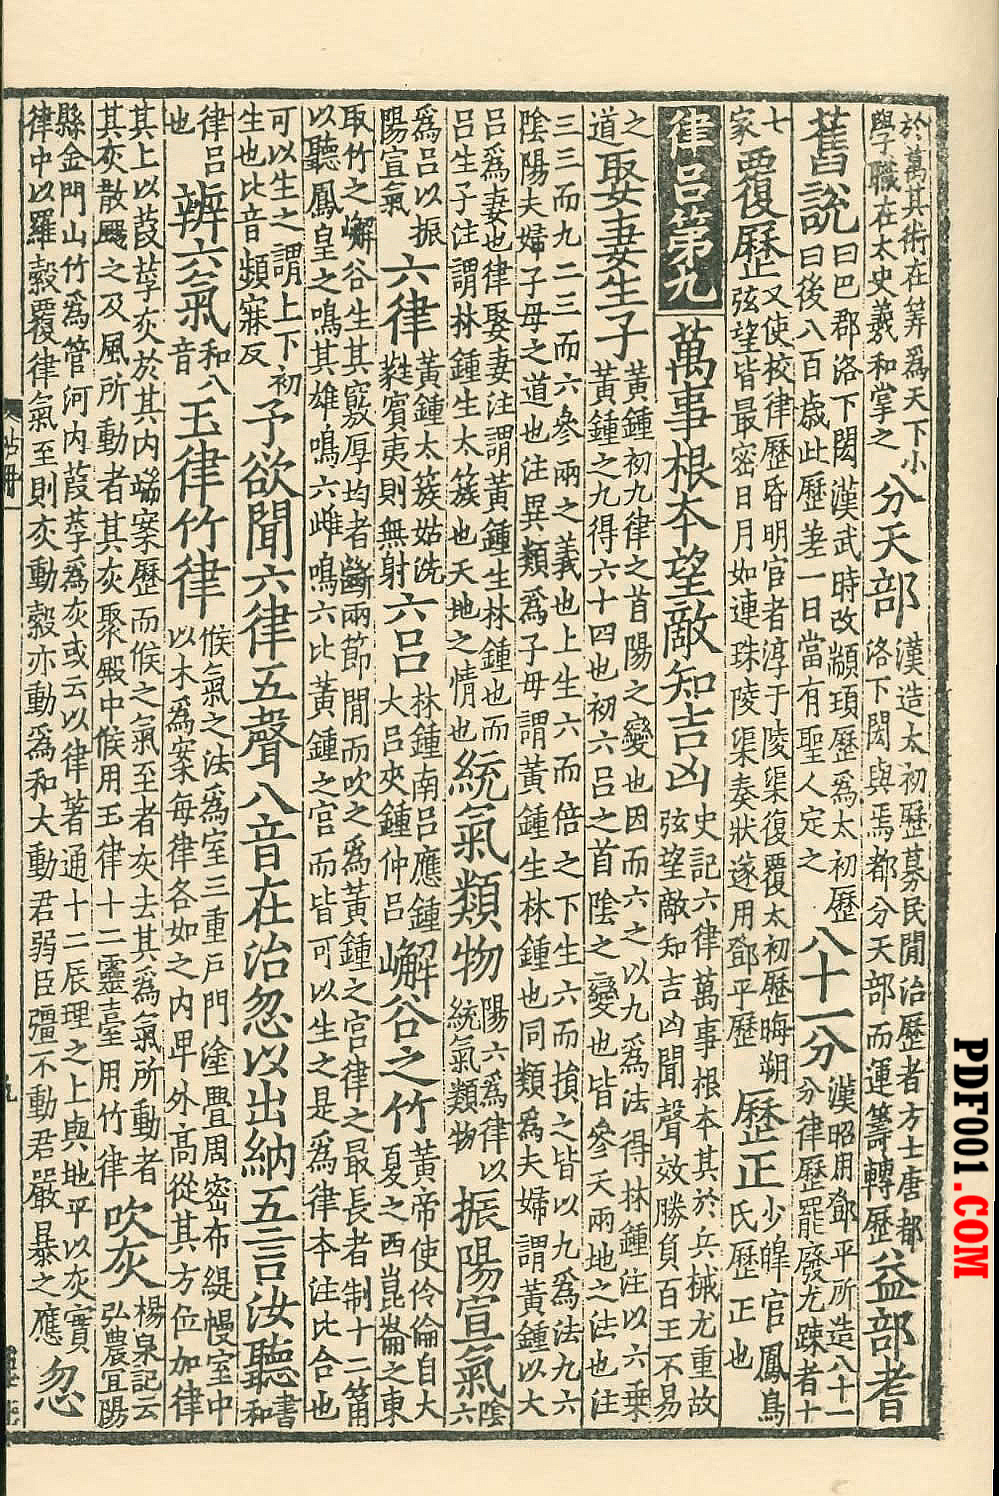 於萬其術在筭爲天下小
學職在太史羲和掌之
分天部
漢造太初歷募民間治歷者方士唐都
洛下閎與焉都分天部而運籌轉歷
益部耆
舊說
曰巴郡洛下閎漢武時改顓頊歷爲太初歷
曰後八百歲此歷差一日當有聖人定之
八十一分
漢昭用鄧平所造八十一
分律歷罷廢尤踈者十
七
家
覆歷
又使校律歷昏明官者淳于陵渠復覆太初歷晦朔
弦望皆最密日月如連珠陵渠奏狀遂用鄧平歷
歷正
少皥官鳳鳥
氏歷正也
律呂第九
萬事根本望敵知吉凶
史記六律萬事根本其於兵械尤重故
弦望敵知吉凶聞聲效勝負百王不易
之
道
娶妻生子
黃鍾初九律之首陽之變也因而六之以九爲法得林鍾注以六乗
黃鍾之九得六十四也初六呂之首陰之變也皆參天兩地之法也注
三三而九二三而六參兩之義也上生六而倍之下生六而損之皆以九爲法九六
陰陽夫婦子母之道也注異類爲子母謂黃鍾生林鍾也同類爲夫婦謂黃鍾以大
呂爲妻也律娶妻注謂黃鍾生林鍾也而
呂生子注謂林鍾生太簇也天地之情也
統氣類物
陽六爲律以
統氣類物
振陽宣氣
陰
六
爲呂以振
陽宣氣
六律
黃鍾太簇姑洗
蕤賓夷則無射
六呂
林鍾南呂應鍾
大呂夾鍾仲呂
嶰谷之竹
黃帝使伶倫自大
夏之西崑崙之東
取竹之嶰谷生其竅厚均者斷兩節間而吹之爲黃鍾之宮律之最長者制十二筩
以聽鳳皇之鳴其雄鳴六雌鳴六比黃鍾之宮而皆可以生之是爲律本注比合也
可以生之謂上下初
生也比音頻寐反
予欲聞六律五聲八音在治忽以出納五言汝聽
書
和
律呂
也
辨六氣
和八
音
玉律竹律
候氣之法爲室三重戶門塗舋周密布緹幔室中
以木爲案每律各如之内卑外高從其方位加律
其上以葭莩灰於其内端案歷而候之氣至者灰去其爲氣所動者
其灰散颺之及風所動者其灰聚殿中候用玉律十二靈臺用竹律
吹灰
楊泉記云
弘農宜陽
縣金門山竹爲管河内葭莩爲灰或云以律著通十二辰理之上與地平以灰實
律中以羅縠覆律氣至則灰動縠亦動爲和大動君弱臣彊不動君嚴暴之應
忽
PDF001.COM